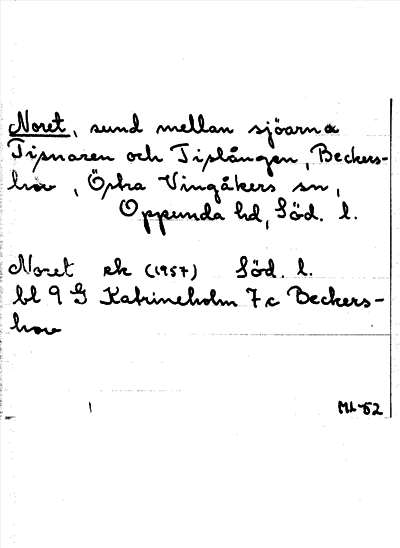 Noret, sund mellan sjöarna
Tisnaren och Tislången, Beckers-
hov, Östra Vingåkers sn,
Oppunda hd, Söd. l.
Noret ek (1957) Söd. l.
bl 9 G Katrineholm 7c Beckers-
hov